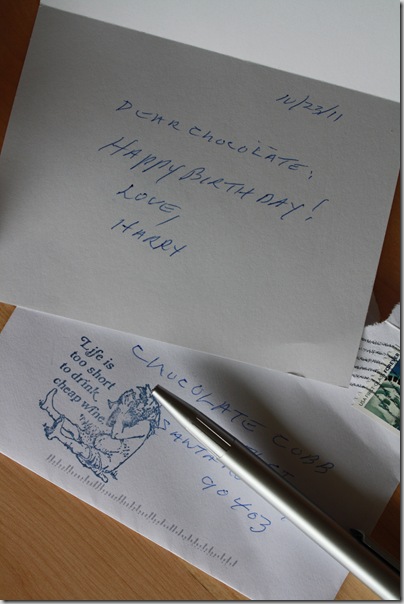 10/23/11
DEAR CHOCOLATE,
HAPPY BIRTHDAY!
LOVE,
HARRY
Life is
too short
to drink
cheap wine.
CHOCOLATE COBB
SANTA
90403